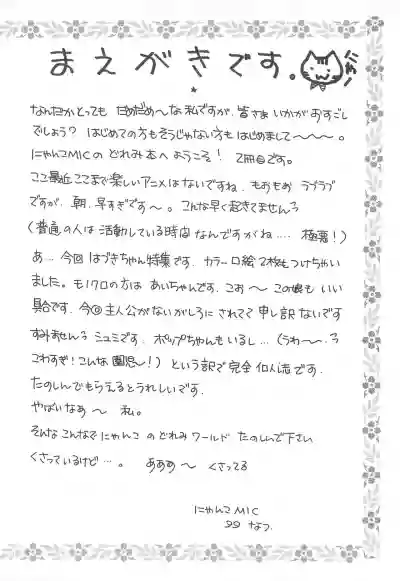 まえがきです。
にゃー!
なんだかとっても だめだめ〜な私ですが、皆さま いかがおすごし
でしょう? はじめての方もそうじゃない方も はじめまして〜〜〜。
にゃんこMICの どれみ本へようこそ! 2冊目です。
ここ最近ここまで楽しいアニメはないですね、もおもお ラブラブ
ですが、朝、早すぎです〜。こんな早く起きてませんろ
(普通の人は活動している時間なんですがね…. 極悪!)
あ… 今回 はづきちゃん特集です、カラー口絵2枚もつけちゃい
ました。も1クロの方は あいちゃんです、こお〜 この娘も いい
具合です、今回主人公がないがしろにされてて申し訳ないです
すみませんろ シュミです、ポップちゃんもいるし…(うわ〜、ろ
こわすぎ!こんな園児〜!)という訳で完全 個人誌です、
たのしんでもらえるとうれしいです、
やばいなあ〜 私。
そんなこんなで にゃんこ のどれみワールド たのしんで下さい
くさっているけど…。 あああ〜 くさってる
にゃんこMIC
99 なつ.